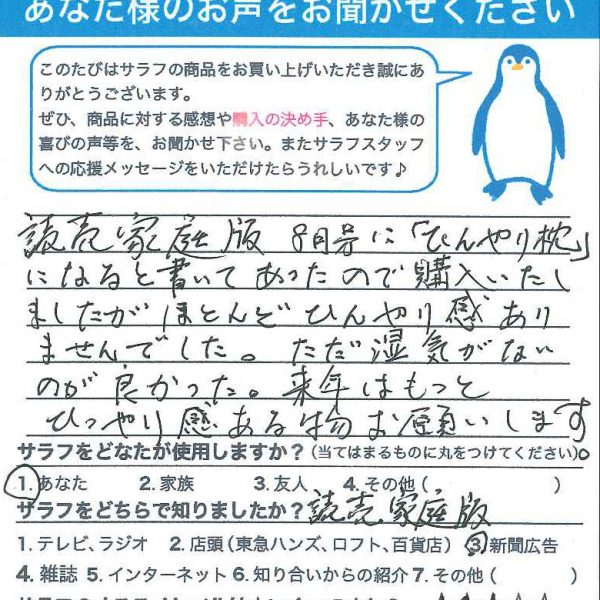 あなた様のお声をお聞かせください
このたびはサラフの商品をお買い上げいただき誠にあ
りがとうございます。
ぜひ、商品に対する感想や購入の決め手、あなた様の
喜びの声等を、お聞かせ下さい。またサラフスタッフ
への応援メッセージをいただけたらうれしいです♪
読売家庭版 8月号に「ひんやり枕」
になると書いてあったので購入いたし
ましたがほとんどひんやり感あり
ませんでした。ただ湿気がない
のが良かった。来年はもっと
ひっやり感ある物お願いします。
サラフをどなたが使用しますか?(当てはまるものに丸をつけてください)
1. あなた 2. 家族 3. 友人 4. その他( )
サラフをどちらで知りましたか? 読売家庭版
1. テレビ、ラジオ 2. 店頭(東急ハンズ、ロフト、百貨店) 3. 新聞広告
4. 雑誌 5. インターネット 6. 知り合いからの紹介 7. その他( )